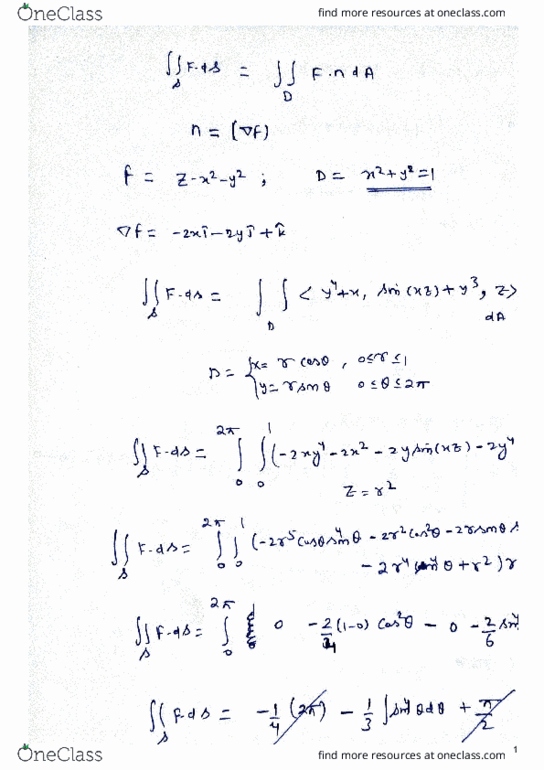 OneClass
find more resources at oneclass.com
∬_S F·ds = ∬_D F·n dA
n = (∇f)
f = z-x²-y² ; D = x²+y²=1
∇f = -2xî-2yĵ+k̂
∬_S F·ds = ∬_D < y⁴+x, sin(xz)+y³, z>
dA
D = { x= r cosθ , 0≤r≤1
y= r sinθ 0≤θ≤2π
∬_S F·ds = ∫_0^2π ∫_0^1 (-2xy⁴-2x²-2y sin(xz)-2y⁴
z=r²
∬_S F·ds = ∫_0^2π ∫_0^1 (-2r⁵cosθsin⁴θ - 2r²cos²θ - 2rsinθ s
- 2r⁴ sin⁴θ+r²)r
∬_S F·ds = ∫_0^2π 0 -2/4 (1-0) cos²θ - 0 - 2/6 sin⁴
∬_S F·ds = -1/4 (2π) - 1/3 ∫sin⁴θdθ + π/2
OneClass
find more resources at oneclass.com
1